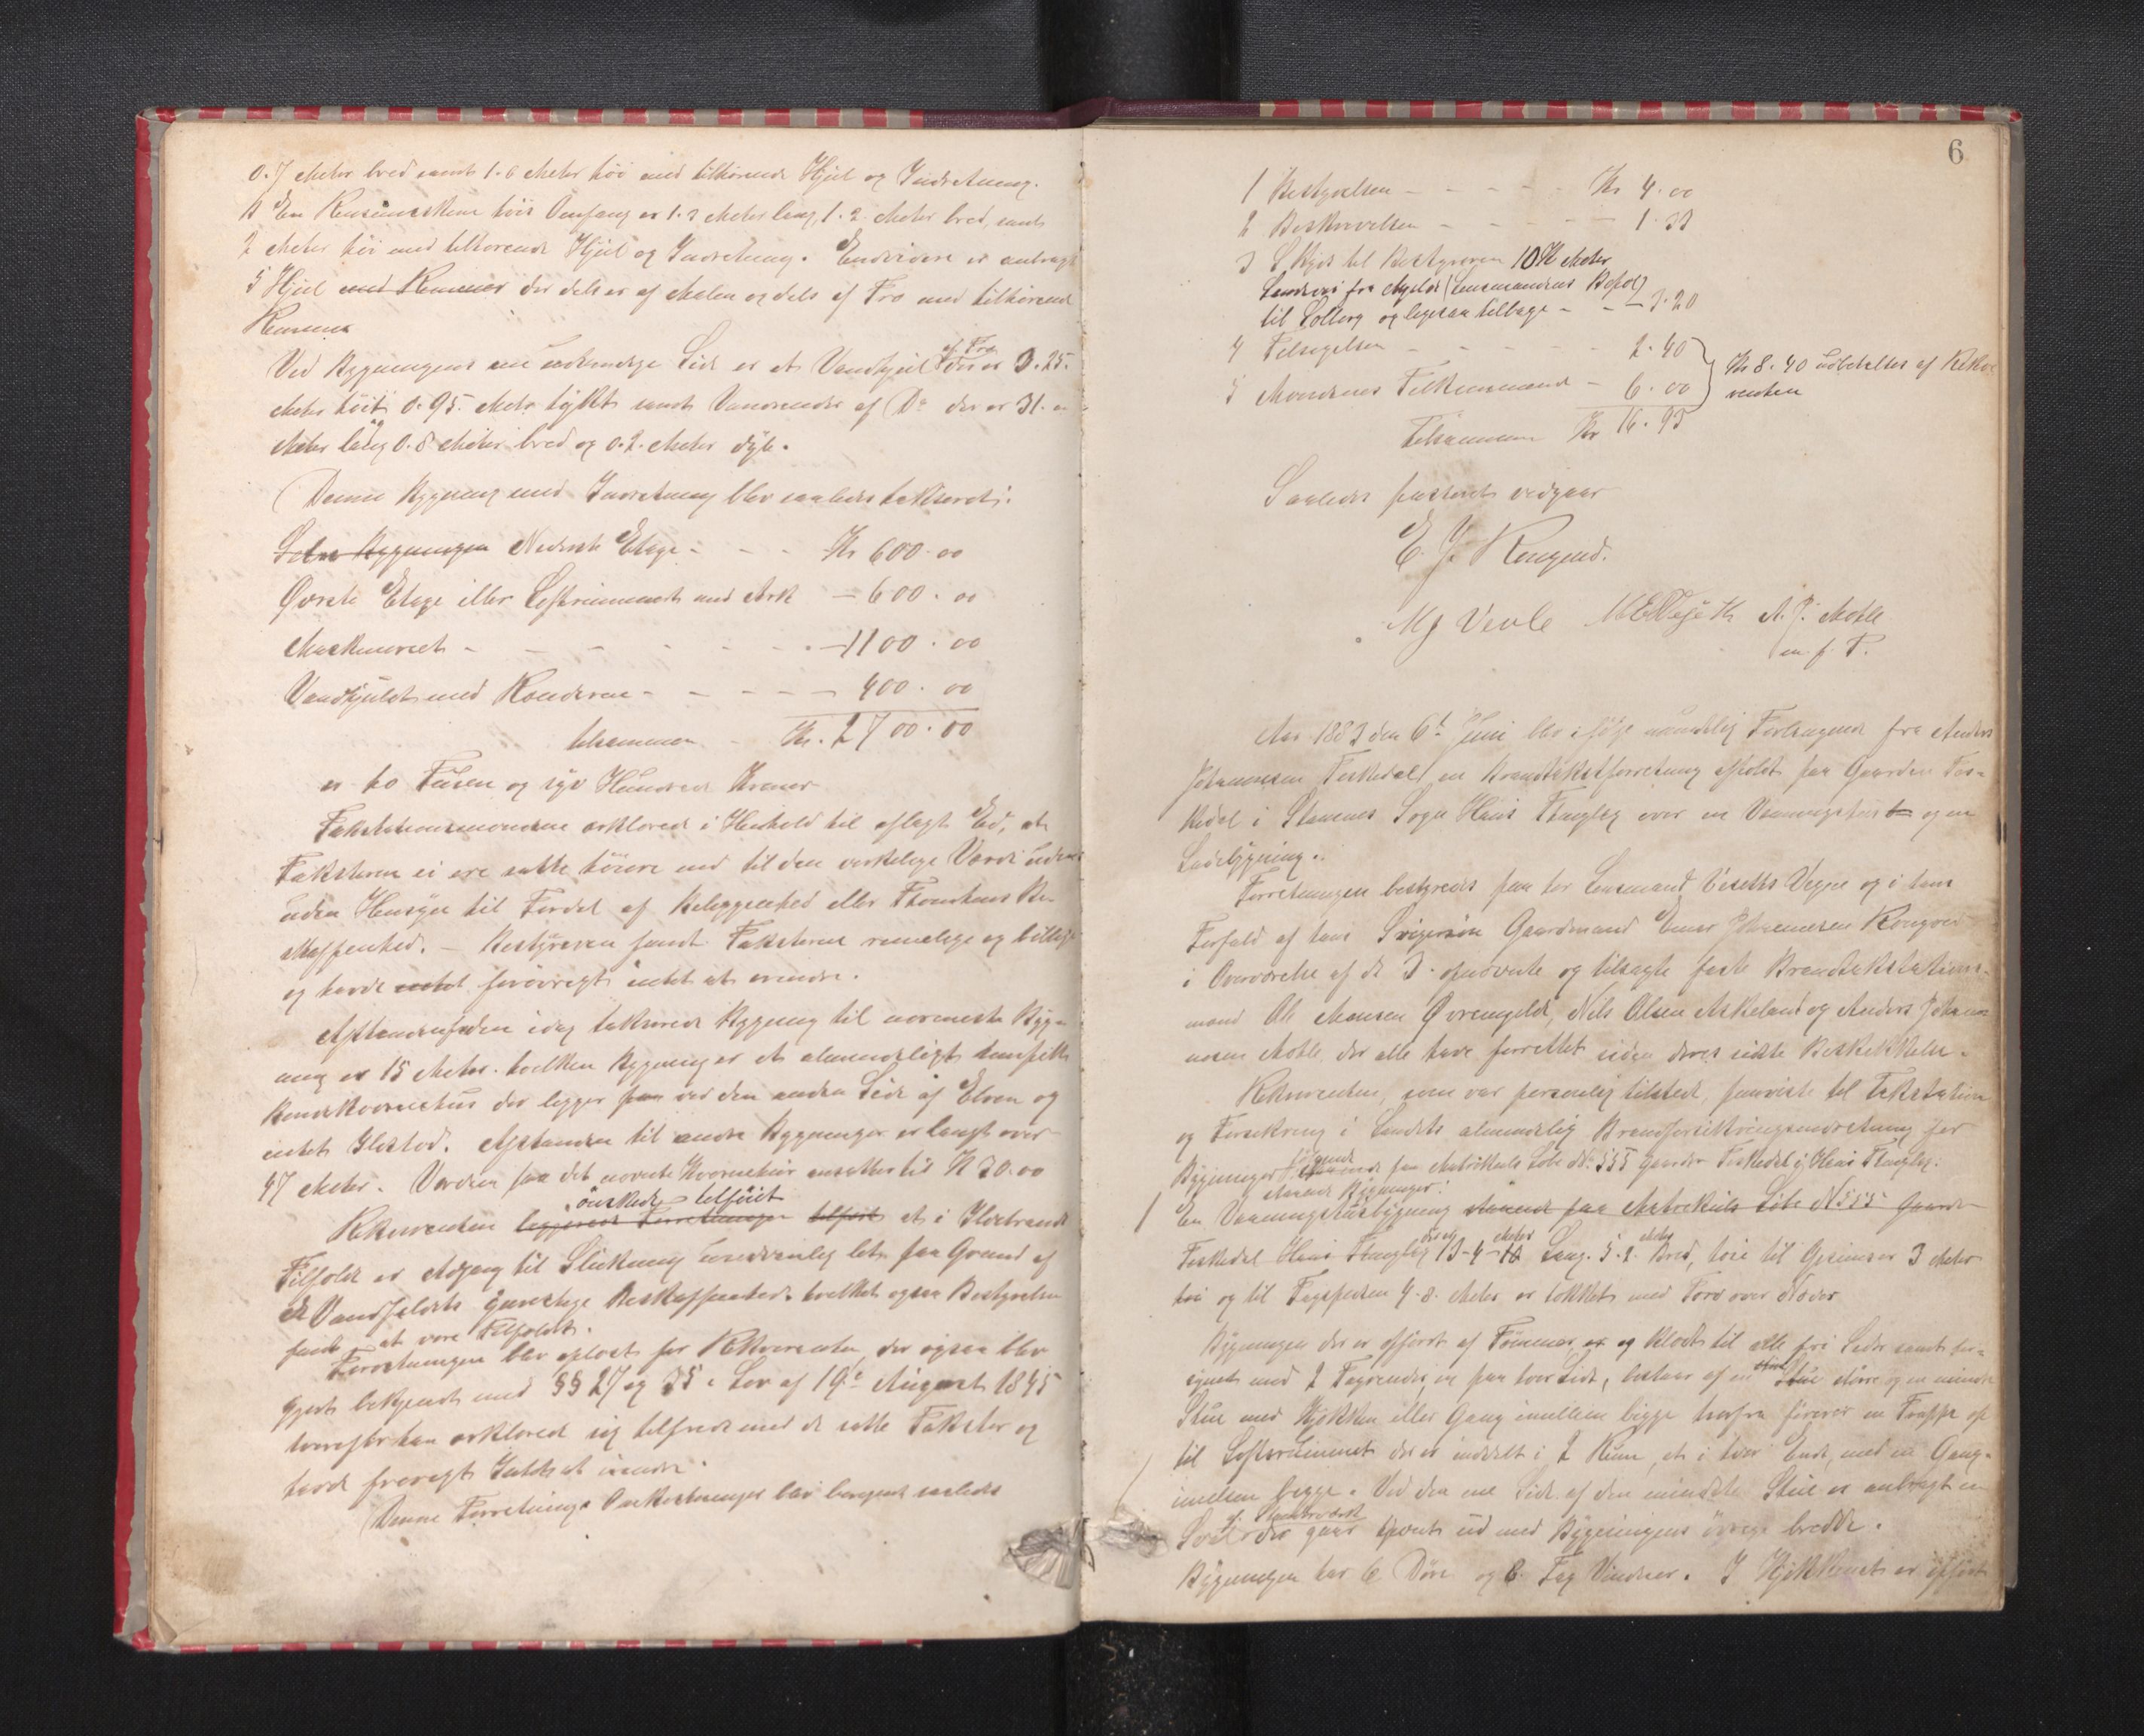 0.7 Meter bred samt 1.6 Meter höi med tilhörende Hjul og Indretning.
En Rensemaskine hvis Omfang er 1.3 Meter lang, 1.2 Meter bred, samt
2 Meter höi med tilhörende Hjul og Indretning. Endvidere er anbragt
5 Hjul med Remmer der dels er af Malm og dels af Træ med tilhörende
Remmer
Ved Bygningens ene udvendige Side er et Vandhjul af Træ der er 3.25.
Meter höit 0.95. Meter tykt samt Vandrender af Do der er 31.
Meter lang 0.8 Meter bred og 0.2. Meter dyb.
Denne Bygning med Indretning blev saaledes taksered:
Selve Bygningen Nederste Etage - - - Kr 600.00
Øverste Etage eller Loftrummet med Ark - 600.00
Maskineriet - - - - - - - 1100.00
Vandhjulet med Renderne - - - - - 400.00
tilsammen - Kr. 2700.00
er to Tusen og syv Hundrede Kroner
Takstationsmændene erklærede i Henhold til aflagt Ed, at
Taksterne ei ere satte höiere end til den verkelige Værdi uden
uden Hensyn til Fordel af Beliggenhed eller Tomtens Be-
skaffenhed. - Bestyreren fandt Taksterne rimelige og billige
og havde intet forövrigt intet at erindre.
Afstanden fra den idag takserede Bygning til nærmeste Byg-
ning er 15 Meter. hvilken Bygning er et almindeligt
Bondekværnehus der ligger paa ved den anden Side af Elven og
intet Ildsted. Afstanden til andre Bygninger er langt over
47 Meter. Værdien paa det nævnte Kværnehus ansattes til K 30.00
önskede tilföiet
Rekvirenten Forretningen tilfört at i Ildebrands
Tilfælde er Adgang til Slukning lets paa Grund af
Vandfaldets Beskaffenhed. hvilket ogsaa Bestyrelsen
fandt at være Tilfældet.
Forretningen blev oplæst for Rekvirenten, der ogsaa blev
gjort bekjendt med §§ 27 og 35 i Lov af 19de August 1845
hvorefter han erklærede sig tilfreds med de satte Takster og
havde forövrigt Intet at erindre.
Denne Forretnings Omkostninger blev beregnet saaledes
6
1 Bestyrelsen - - - - - Kr 4.00
2 Beskrivelsen - - - - - 1.33
3 Skyds til Bestyreren 10 K Meter
Landevei fra (Lensmandens Bopel)
til Solberg og ligesaa tilbage - - - 3.20
4 Tilsigelsen - - - - - 2.40
5 Mændenes Tilkommende - 6.00
Kr 8.40 udbetales af Rekvi-
renten
Tilsammen Kr 16.93
Saaledes passeret vedgaar
E. J. Kongsvd.
A. J. Mohle
m. f. P.
Aar 1883 den 6t Juni blev ifölge mundtlig Forlangende fra Anders
Johannesen Teskedal en Brandtakstforretning afholdt paa Gaarden Tes-
kedal i Stamnes Sogn Haus Thinglag over en Vaaningshus og en
Ladebygning.
Forretningen bestyredes paa her Lensmand Veseths Vegne og i hans
Forfald af hans Svigersön Gaardmand Einar Johannesen
i Overværelse af de 3. opnævnte og tilsagte faste Brandtakstations-
mænd Ole Monsen Øvrengilde, Nils Olsen Askeland og Anders Johan-
nesen Mohle, der alle have forrettet siden deres sidste Beskikkelse.
Rekvirenten, som var personlig tilstede, fremviste til Takstation
og Forsikring i Landets almindelig Brandforsikringsindretning før
Bygninger fölgende paa Matrikuls Löbe No 555 Gaarden Teskedal i Haus Thinglag:
staaende Bygninger:
1 En Vaaningshusbygning staaende paa Matrikuls Löbe No 555 Gaarde
Teskedal Haus Thinglag der er 13-4 Meter Lang. 5.2. Meter Bred, höi til Gesimser 3 Meter
höi og til Tagspidsen 4-8. Meter er tækket med Torv over Næver
Bygningen der er opført af Tömmer er og klædt til alle fri Sider samt for-
synet med 2 Tagrender, en paa hver Side, bestaar af en Stue större og en mindre
Stue med Kjökken eller Gang imellem begge herfra förer en Trappe op
til Loftsrummet der er inddelt i 2 Rum, et i hver Ende, med en Gang
imellem begge. Ved den ene Side af den mindste Stue er anbragt en
Sval af Stavværk der gaar ud med Bygningens övrige bredde.
Bygningen har 6 Döre og 6. Fag Vinduer. I Kjökkenet er opført